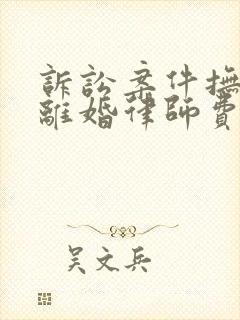 訴訟案件撫
離婚律師費
吴文兵